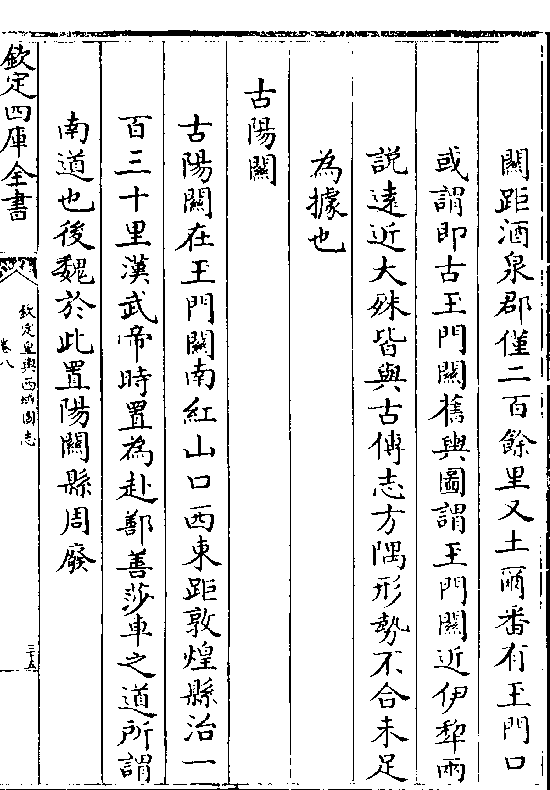 關距酒泉郡僅二百餘里又土爾番有玉門口
或謂即古玉門關舊輿圖謂玉門關近伊犂兩
説逺近大殊皆與古傳志方隅形勢不合未足
為據也
古陽關
古陽關在玉門關南紅山口西東距敦煌縣治一
百三十里漢武帝時置為赴鄯善莎車之道所謂
南道也後魏於此置陽關縣周廢
欽定四庫全書
欽定皇輿西域圖志
卷八
三十五